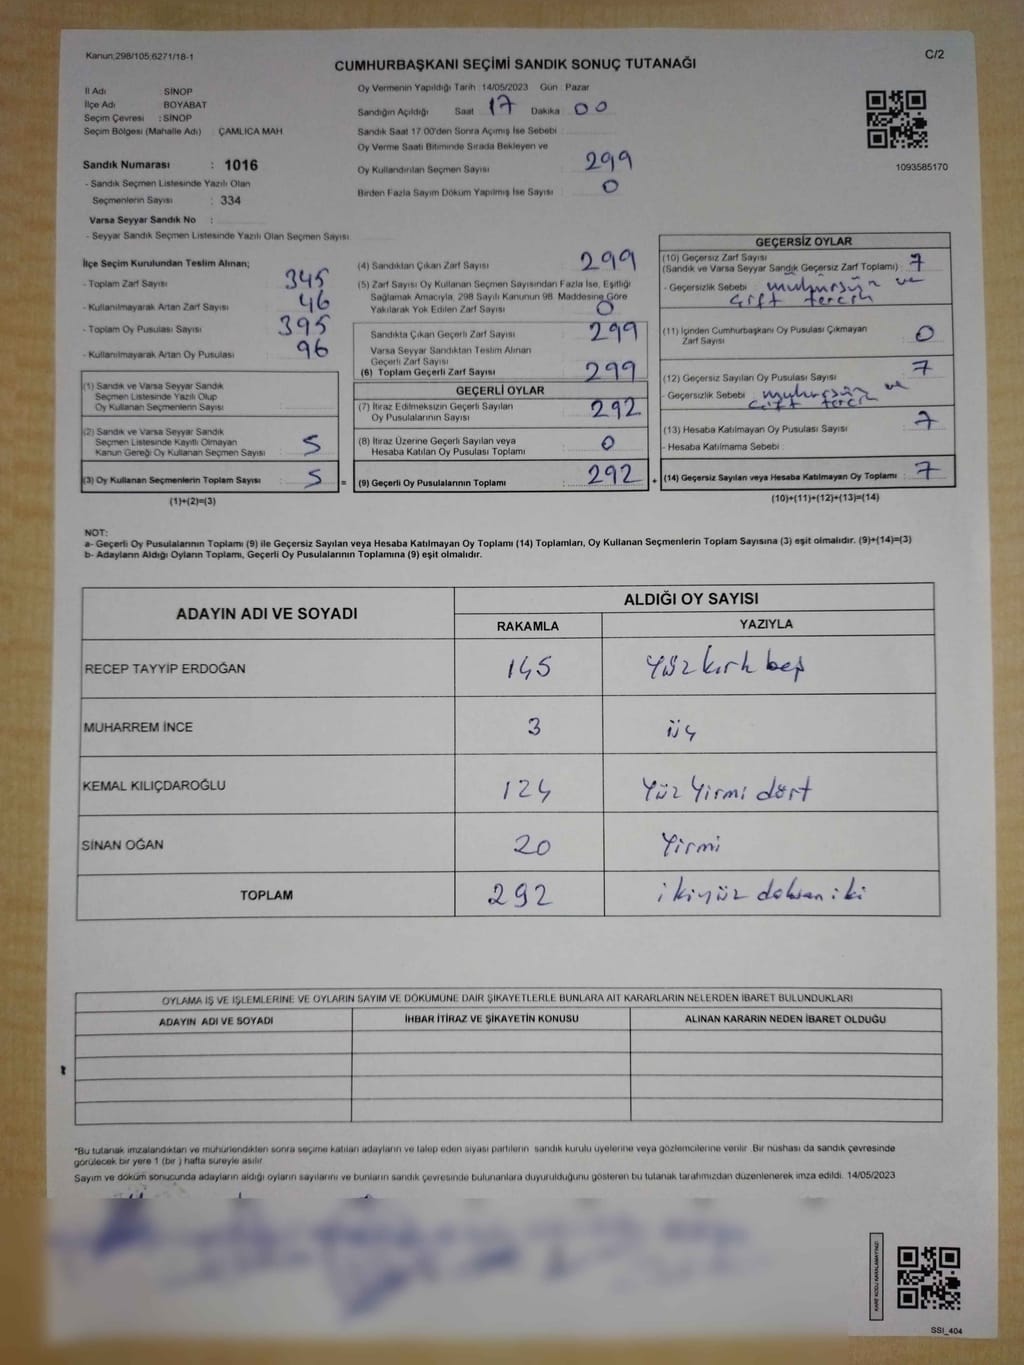 Kanun;298/105;6271/18-1
C/2
CUMHURBAŞKANI SEÇİMİ SANDIK SONUÇ TUTANAĞI
İl Adı : SİNOP
İlçe Adı : BOYABAT
Seçim Çevresi : SİNOP
Seçim Bölgesi (Mahalle Adı) : ÇAMLICA MAH.
Sandık Numarası : 1016
- Sandık Seçmen Listesinde Yazılı Olan
Seçmenlerin Sayısı : 334
Varsa Seyyar Sandık No :
- Seyyar Sandık Seçmen Listesinde Yazılı Olan Seçmen Sayısı
Oy Vermenin Yapıldığı Tarih 14/05/2023 Gün Pazar
Sandığın Açıldığı Saat 17 Dakika 00
Sandık Saat 17.00'den Sonra Açımış İse Sebebi
Oy Verme Saati Bitiminde Sırada Bekleyen ve
Oy Kullandırılan Seçmen Sayısı : 299
Birden Fazla Sayım Döküm Yapılmış İse Sayısı : 0
1093585170
İlçe Seçim Kurulundan Teslim Alınan;
- Toplam Zarf Sayısı : 345
- Kullanılmayarak Artan Zarf Sayısı : 46
- Toplam Oy Pusulası Sayısı : 395
- Kullanılmayarak Artan Oy Pusulası : 96
(1) Sandık ve Varsa Seyyar Sandık
Seçmen Listesinde Yazılı Olup
Oy Kullanan Seçmenlerin Sayısı :
(2) Sandık ve Varsa Seyyar Sandık
Seçmen Listesinde Kayıtlı Olmayan
Kanun Gereği Oy Kullanan Seçmen Sayısı : 5
(3) Oy Kullanan Seçmenlerin Toplam Sayısı : 5
=
(1)+(2)=(3)
(4) Sandıktan Çıkan Zarf Sayısı : 299
(5) Zarf Sayısı Oy Kullanan Seçmen Sayısından Fazla İse, Eşitliği
Sağlamak Amacıyla, 298 Sayılı Kanunun 98. Maddesine Göre
Yakılarak Yok Edilen Zarf Sayısı : 0
Sandıkta Çıkan Geçerli Zarf Sayısı : 299
Varsa Seyyar Sandıktan Teslim Alınan
Geçerli Zarf Sayısı
(6) Toplam Geçerli Zarf Sayısı : 299
GEÇERLİ OYLAR
(7) İtiraz Edilmeksizin Geçerli Sayılan
Oy Pusulalarının Sayısı : 292
(8) İtiraz Üzerine Geçerli Sayılan veya
Hesaba Katılan Oy Pusulası Toplamı : 0
(9) Geçerli Oy Pusulalarının Toplamı : 292
+
GEÇERSİZ OYLAR
(10) Geçersiz Zarf Sayısı
(Sandık ve Varsa Seyyar Sandık Geçersiz Zarf Toplamı) : 7
- Geçersizlik Sebebi : mühürsüz ve
çift tercih
(11) İçinden Cumhurbaşkanı Oy Pusulası Çıkmayan
Zarf Sayısı : 0
(12) Geçersiz Sayılan Oy Pusulası Sayısı : 7
- Geçersizlik Sebebi : mühürsüz ve
çift tercih
(13) Hesaba Katılmayan Oy Pusulası Sayısı : 7
- Hesaba Katılmama Sebebi :
(14) Geçersiz Sayılan veya Hesaba Katılmayan Oy Toplamı : 7
(10)+(11)+(12)+(13)=(14)
NOT:
a- Geçerli Oy Pusulalarının Toplamı (9) ile Geçersiz Sayılan veya Hesaba Katılmayan Oy Toplamı (14) Toplamları, Oy Kullanan Seçmenlerin Toplam Sayısına (3) eşit olmalıdır. (9)+(14)=(3)
b- Adayların Aldığı Oyların Toplamı, Geçerli Oy Pusulalarının Toplamına (9) eşit olmalıdır.
ADAYIN ADI VE SOYADI
ALDIĞI OY SAYISI
RAKAMLA YAZIYLA
RECEP TAYYİP ERDOĞAN 145 Yüz kırk beş
MUHARREM İNCE 3 üç
KEMAL KILIÇDAROĞLU 124 Yüz Yirmi dört
SİNAN OĞAN 20 Yirmi
TOPLAM 292 ikiyüz doksan iki
OYLAMA İŞ VE İŞLEMLERİNE VE OYLARIN SAYIM VE DÖKÜMÜNE DAİR ŞİKAYETLERLE BUNLARA AİT KARARLARIN NELERDEN İBARET BULUNDUKLARI
ADAYIN ADI VE SOYADI İHBAR İTİRAZ VE ŞİKAYETİN KONUSU ALINAN KARARIN NEDEN İBARET OLDUĞU
*Bu tutanak imzalandıktan ve mühürlendikten sonra seçime katılan adayların ve talep eden siyasi partilerin sandık kurulu üyelerine veya gözlemcilerine verilir. Bir nüshası da sandık çevresinde
görülecek bir yere 1 (bir) hafta süreyle asılır.
Sayım ve döküm sonucunda adayların aldığı oyların sayılarını ve bunların sandık çevresinde bulunanlara duyurulduğunu gösteren bu tutanak tarafımızdan düzenlenerek imza edildi. 14/05/2023
KARE KODU KARALAMAYINIZ!
SSI_404